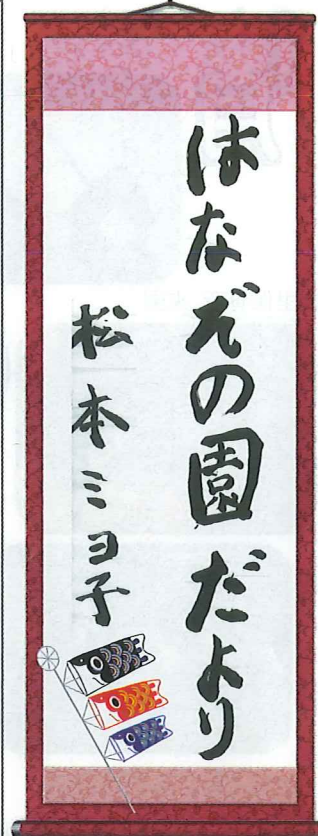 はなぞの園だより
松本ミヨ子